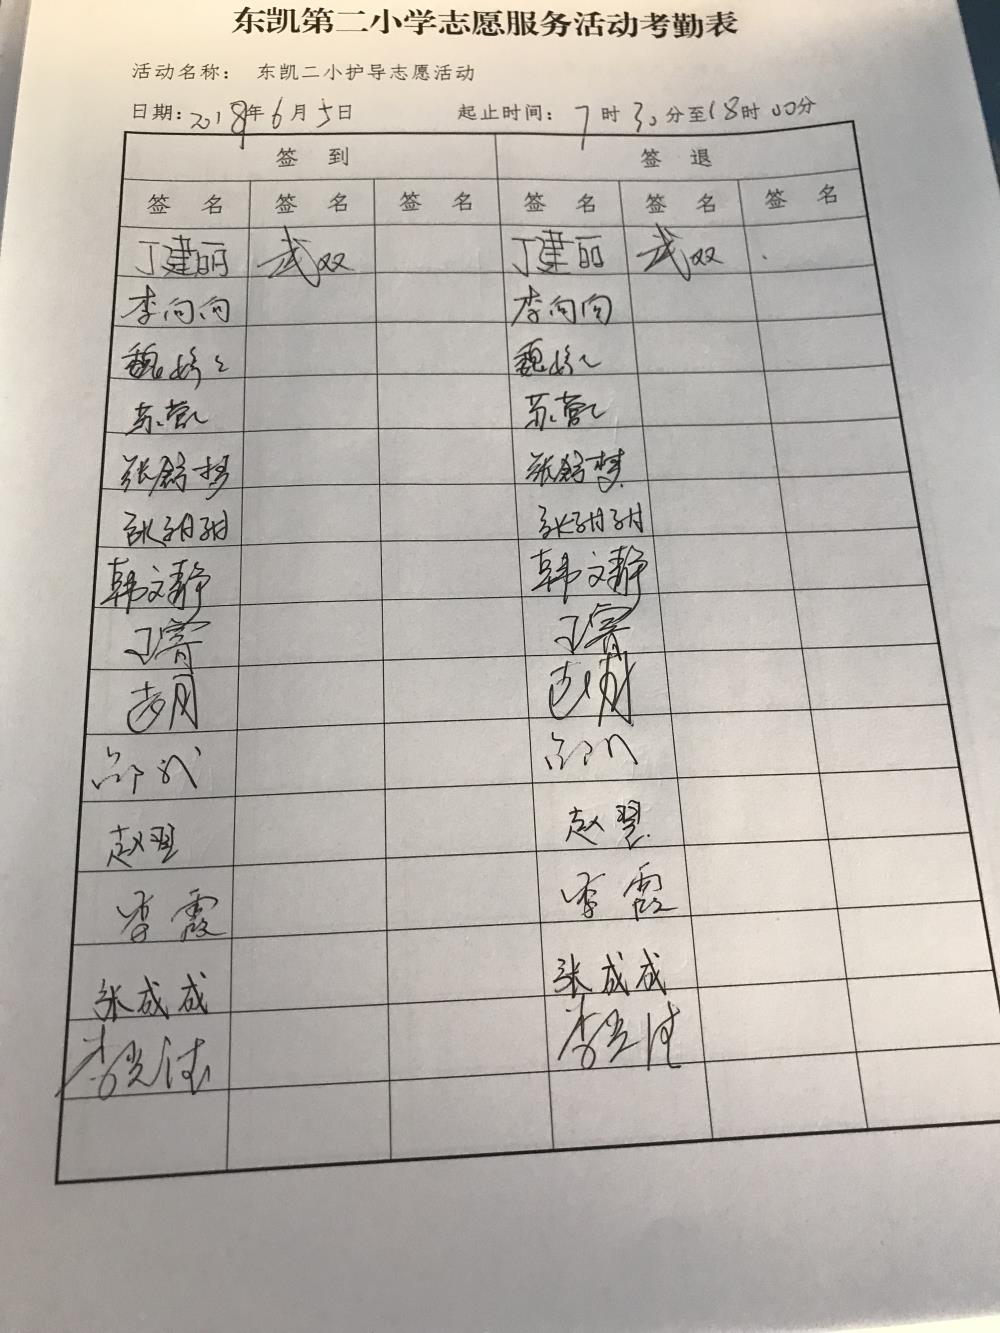 东凯第二小学志愿服务活动考勤表
活动名称： 东凯二小护导志愿活动
日期：2018年6月5日 起止时间：7时30分至18时00分
签 到 签 退
签 名 签 名 签 名 签 名 签 名 签 名
丁建丽 武双 丁建丽 武双
李向向 李向向
魏婷婷 魏婷婷
苏营营 苏营营
张 梦 张 梦
张甜甜 张甜甜
韩文静 韩文静
王 王
赵翌 赵翌
李霞 李霞
张成成 张成成
李 李